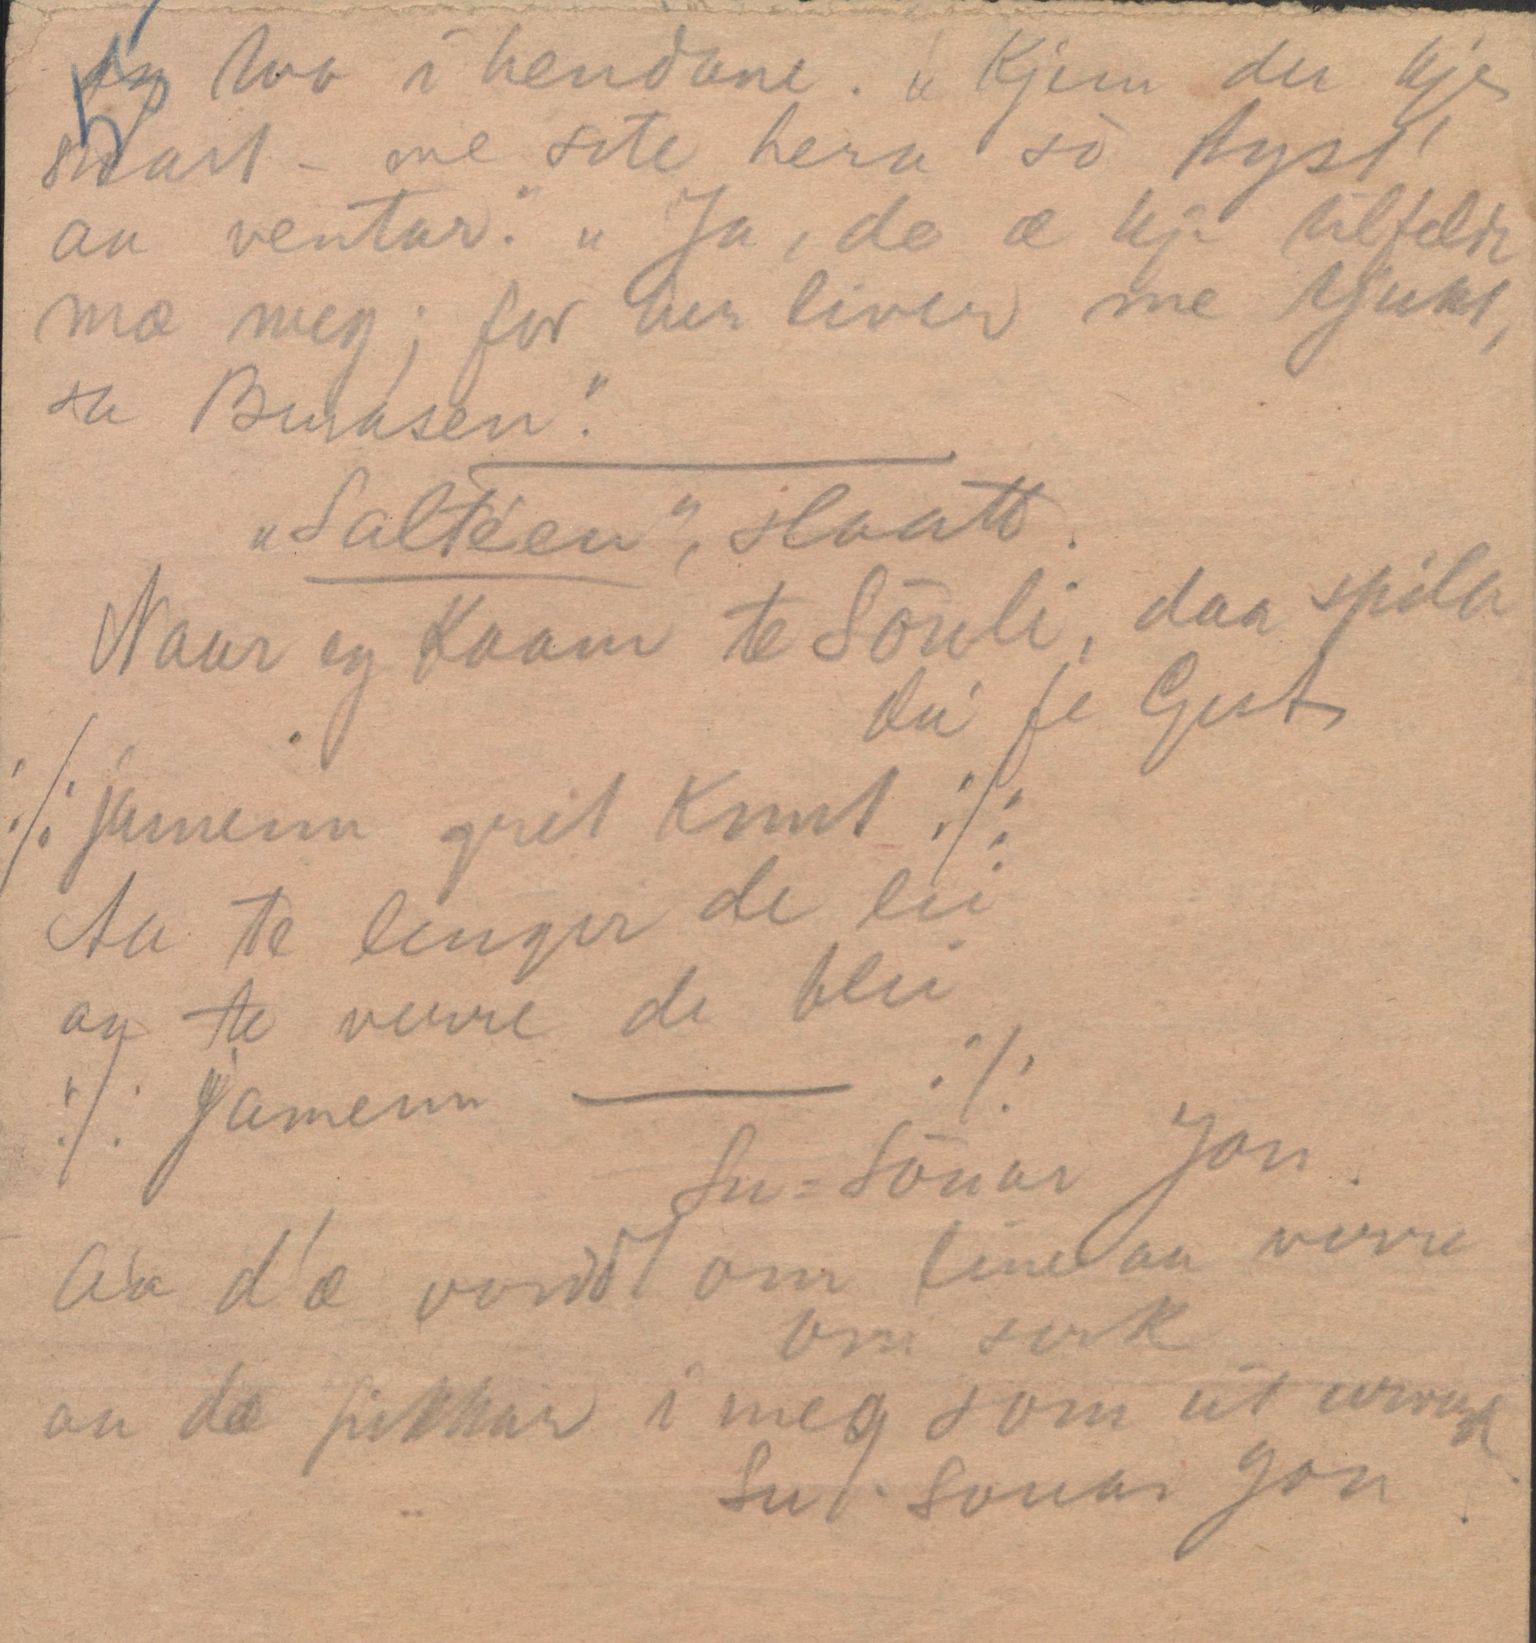 i hendane. „Kjem du kje
snart - me site hera so tyst
aa ventar." „Ja, de æ kje tilfelde
mæ meg; for her liver me tjukt,
sa Bunasen."
„Saltéen", slaatt.
Naar eg kaam te Sönli, daa spila
dei fe Gest
:/: jamenn gret Knut :/:
Aa te lenger de lei
aa te verre de blei
:/: Jamenn ——— :/:
Su-Sönar Jon.
Aa d'æ vondt om line aa verre
om serk
aa dæ pikkar i meg som eit urverk.
Su-Sonar Jon.